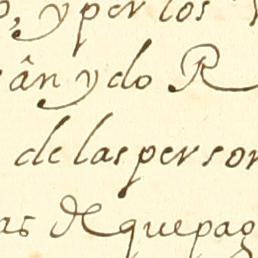 , y per los
ân y do R
de las perso
as de que pag